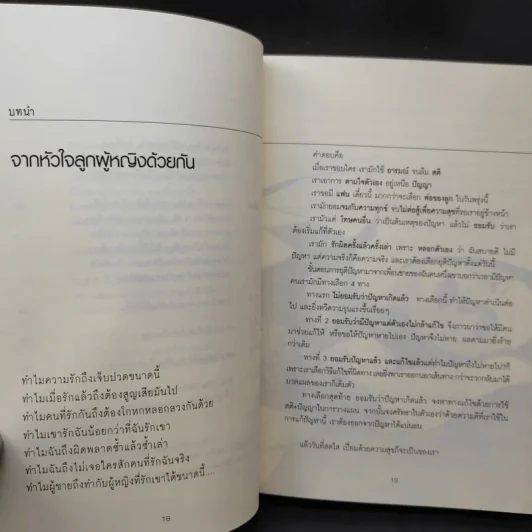 บทนำ
จากหัวใจลูกผู้หญิงด้วยกัน
ทำไมความรักถึงเจ็บปวดขนาดนี้
ทำไมเมื่อรักแล้วถึงต้องสูญเสียมันไป
ทำไมคนที่รักกันถึงต้องโกหกหลอกลวงกันด้วย
ทำไมเขารักฉันน้อยกว่าที่ฉันรักเขา
ทำไมฉันถึงผิดพลาดซ้ำแล้วซ้ำเล่า
ทำไมฉันถึงไม่เจอใครสักคนที่รักฉันจริง
ทำไมผู้ชายถึงทำกับผู้หญิงที่รักเขาได้ขนาดนี้....
18
คำตอบคือ
เมื่อเราชอบใคร เรามักใช้ อารมณ์ จนลืม สติ
เราเอาการ ตามใจตัวเอง อยู่เหนือ ปัญญา
เราขอมี แฟน เดี๋ยวนี้ มากกว่าจะเลือก พ่อของลูก ในวันพรุ่งนี้
เรามักยอมจมกับความทุกข์ จนไม่ต่อสู้เพื่อความสุขที่รอเราอยู่ข้างหน้า
เรามัวแต่ โทษคนอื่น ว่าเป็นต้นเหตุของปัญหา แล้วไม่ ยอมรับ ว่าเรา
ต้องเริ่มแก้ที่ตัวเอง
เรามัก รักผิดครั้งแล้วครั้งเล่า เพราะ หลอกตัวเอง ว่า ฉันสบายดี ไม่มี
ปัญหา แต่ความจริงก็คือความจริง และเราต้องเลือกยุติปัญหาตั้งแต่วันนี้
คนเรามักมีทางเลือก 4 ทาง
ทางแรก ไม่ยอมรับว่าปัญหาเกิดแล้ว ทางเลือกนี้ ทำให้ปัญหาดำเนินต่อ
ไป และยิ่งทวีความรุนแรงขึ้นเรื่อยๆ
ทางที่ 2 ยอมรับว่ามีปัญหาแต่ตัวเองไม่กล้าแก้ไข จึงภาวนาว่าขอให้มีคน
มาช่วยแก้ให้ หรือขอให้ปัญหาหายไปเอง ปัญหาจึงไม่หาย ผลตามมายิ่งร้าย
กว่าเดิม
ทางที่ 3 ยอมรับปัญหาแล้ว และแก้ไขแล้วแต่ทำไมปัญหาถึงไม่หายไปสักที
เพราะเราเลือกวิธีแก้ไขที่ผิดทาง
บาดแผลของเราก็เต็มตัว
ทางเลือกสุดท้าย ยอมรับว่าปัญหาเกิดแล้ว จงหาทางแก้ไขด้วยการใช้
สติปัญญาในการวางแผน
การแก้ปัญหานี้ เราต้องออกจากปัญหาได้แน่นอน
แล้ววันที่สดใส เปี่ยมด้วยความสุขก็จะเป็นของเรา
19